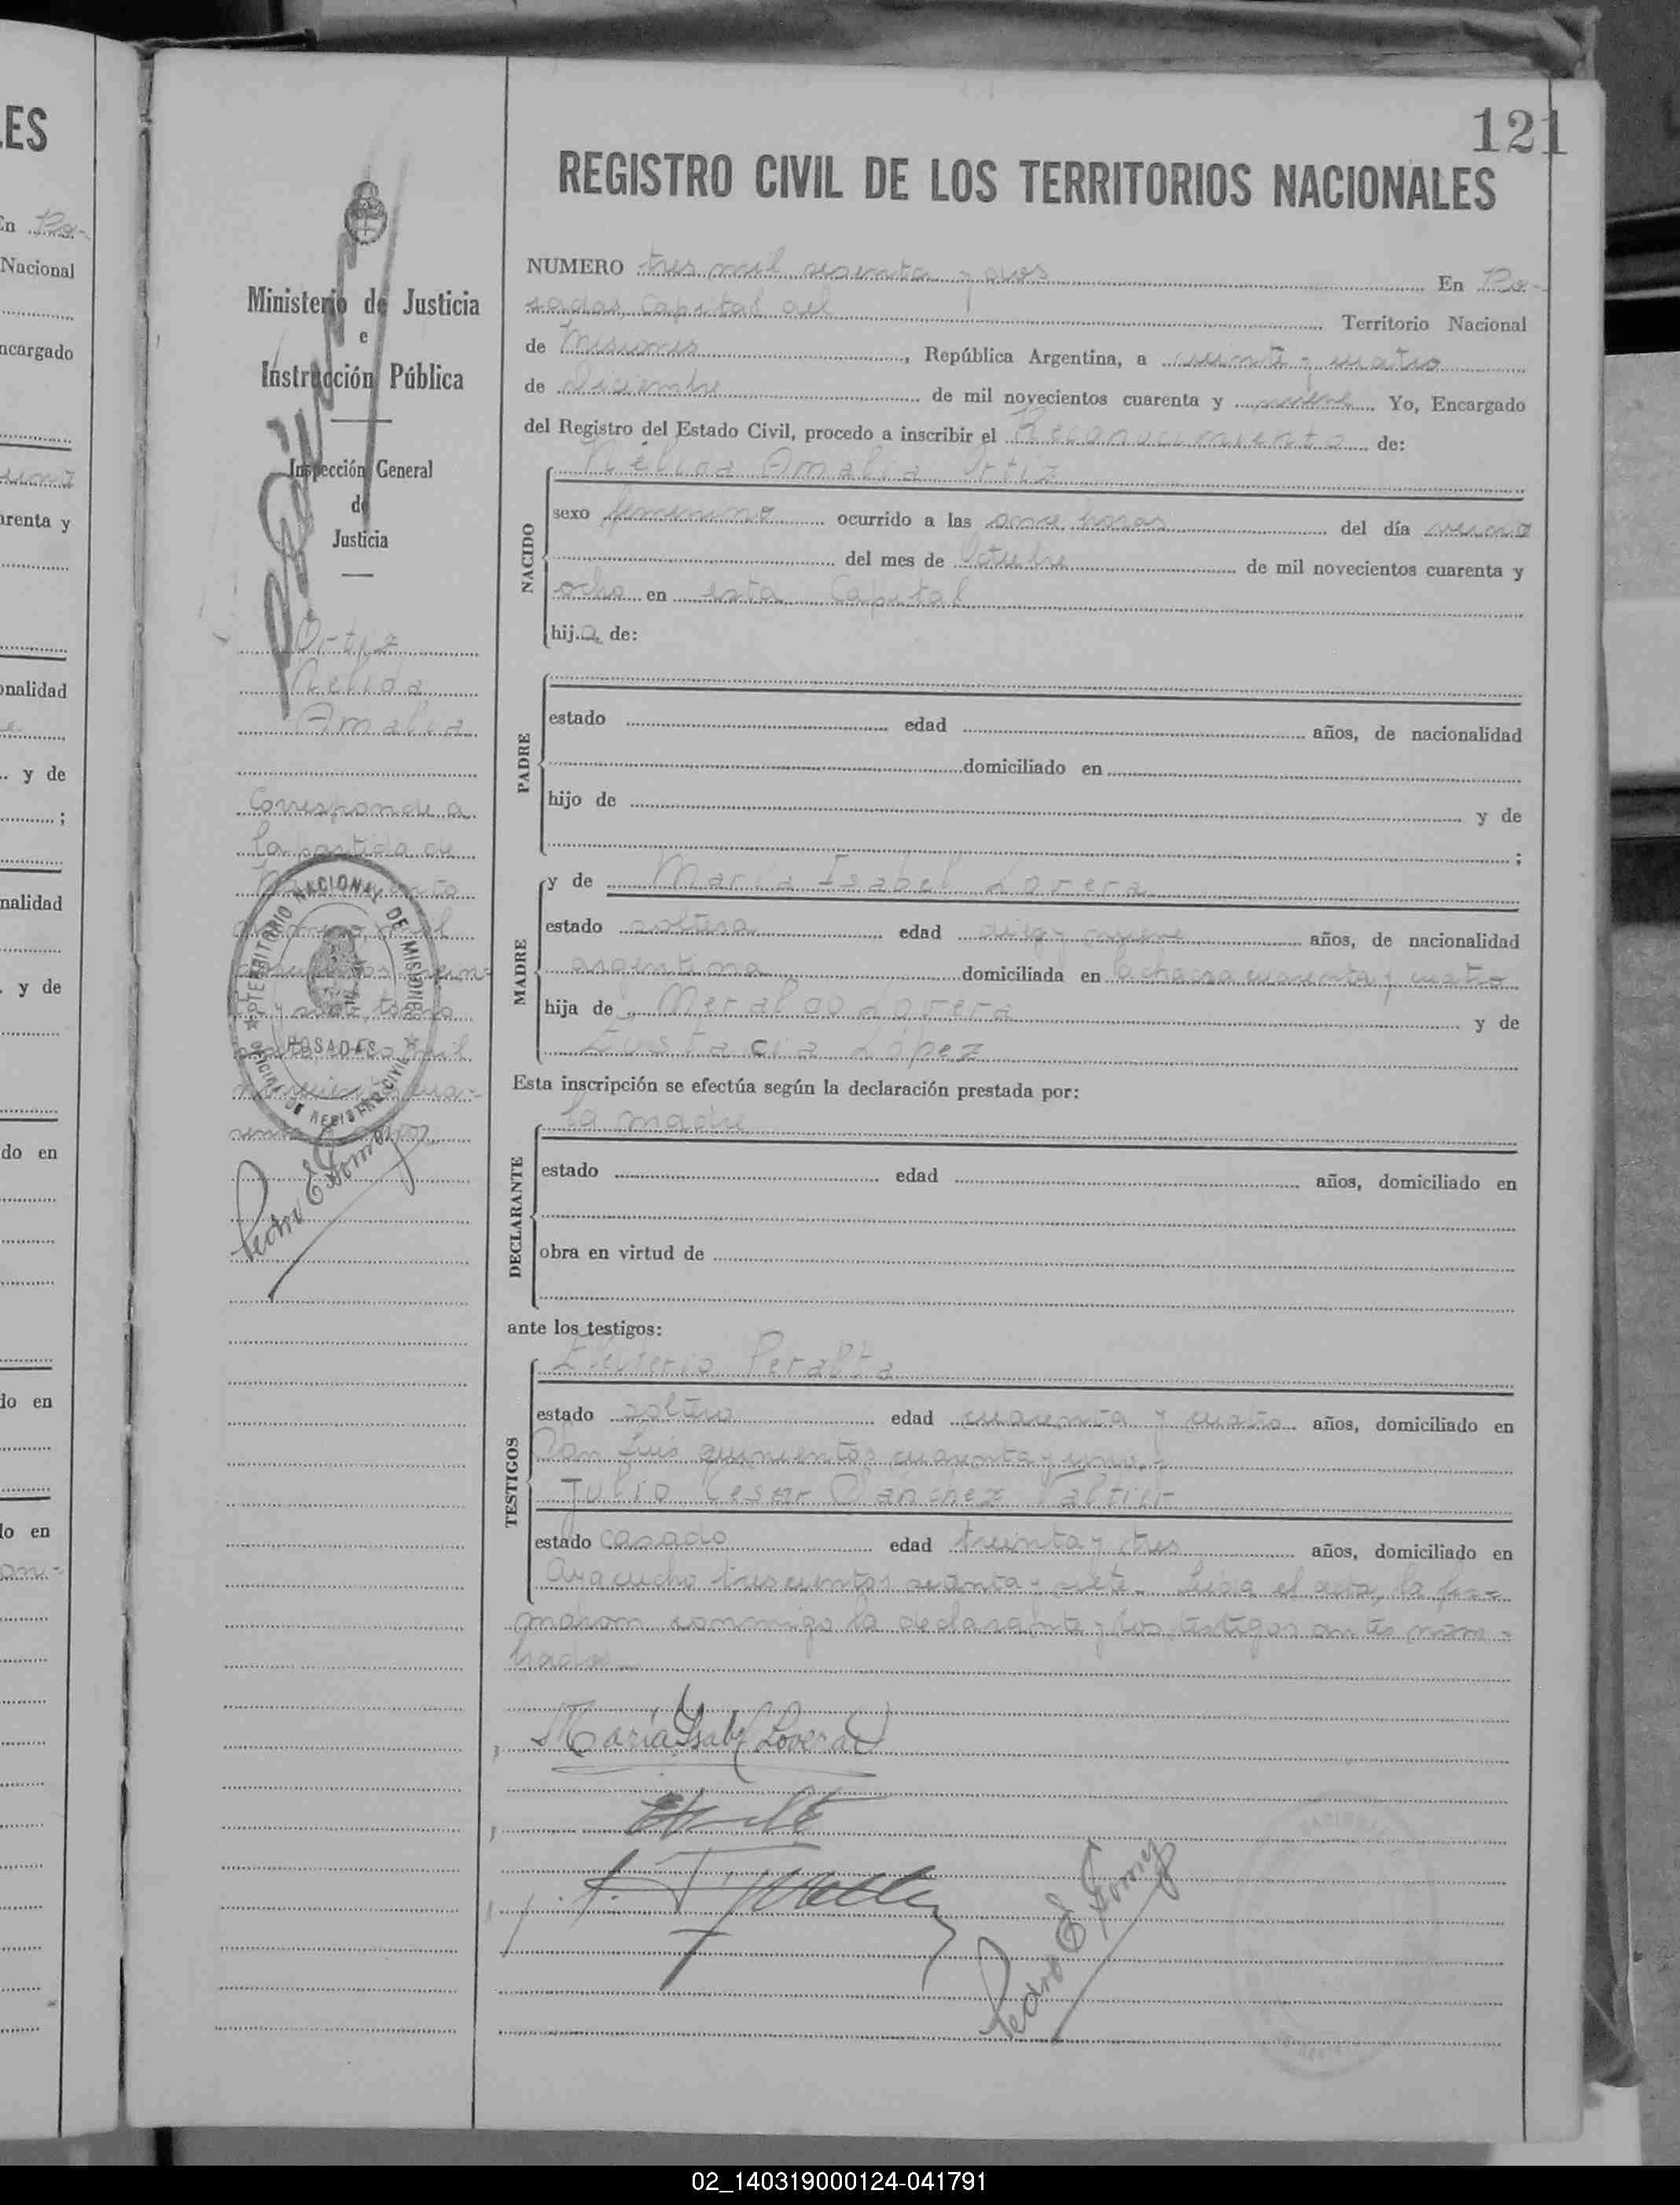 121
REGISTRO CIVIL DE LOS TERRITORIOS NACIONALES
NUMERO tres mil sesenta y dos En Po-
sadas, Capital del Territorio Nacional
de Misiones, República Argentina, a veinte y cuatro
de Diciembre de mil novecientos cuarenta y nueve Yo, Encargado
del Registro del Estado Civil, procedo a inscribir el Reconocimiento de:
NACIDO
Nélida Amalia Ortiz
sexo femenino ocurrido a las once horas del día
del mes de Octubre de mil novecientos cuarenta y
ocho en esta Capital
hija de:
PADRE
estado edad años, de nacionalidad
domiciliado en
hijo de y de
;
MADRE
y de María Isabel Lovera
estado soltera edad diez y nueve años, de nacionalidad
argentina domiciliada en la chacra cuarenta y cuatro
hija de Lovera y de
Eustacia López
Esta inscripción se efectúa según la declaración prestada por:
DECLARANTE
la madre
estado edad años, domiciliado en
obra en virtud de
ante los testigos:
TESTIGOS
Eleuterio Peralta
estado soltero edad cuarenta y cuatro años, domiciliado en
San Luis quinientos cuarenta y uno.-
Julio Cesar Sanchez
estado casado edad treinta y tres años, domiciliado en
Ayacucho trescientos setenta y siete. Leída el acta, la fir-
maron conmigo la declarante y los testigos antes nom-
brados
María Isabel Lovera
Pedro E Gomez
Ministerio de Justicia
e
Instrucción Pública
Inspección General
de
Justicia
Ortiz
Nelida
Amalia
Corresponde a
la partida de
TERRITORIO NACIONAL DE MISIONES
POSADAS
OFICINA DE REGISTRO CIVIL
Pedro E Gomez
ES
En Po-
Nacional
ncargado
arenta y
onalidad
y de
;
nalidad
y de
do en
do en
lo en
02_140319000124-041791